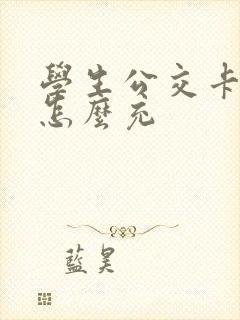 學生公交卡
怎麼充
藍昊